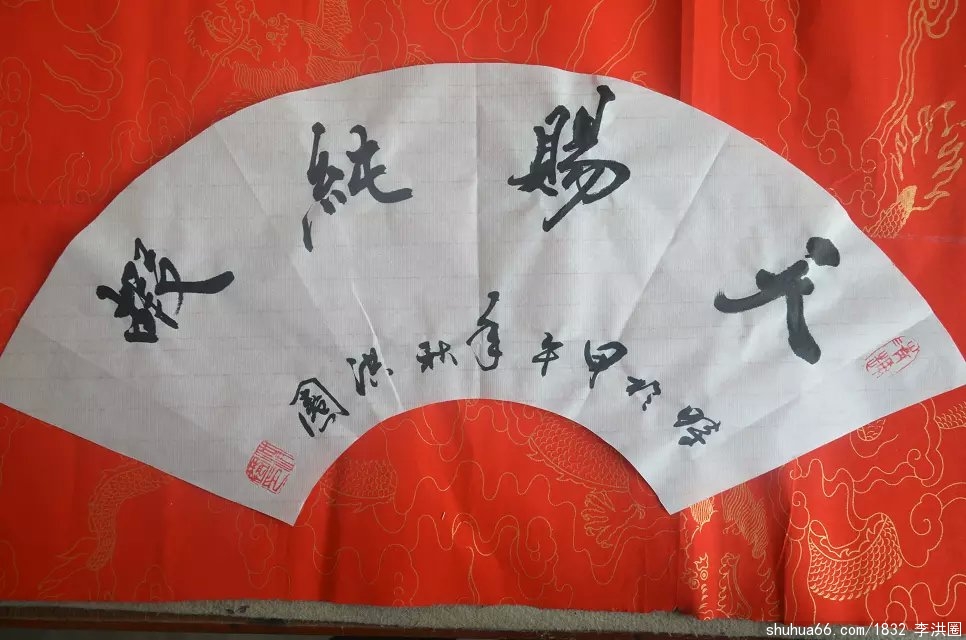 天賜純嘏
時於甲午年秋洪圈
shuhua66.com/1832 李洪圈